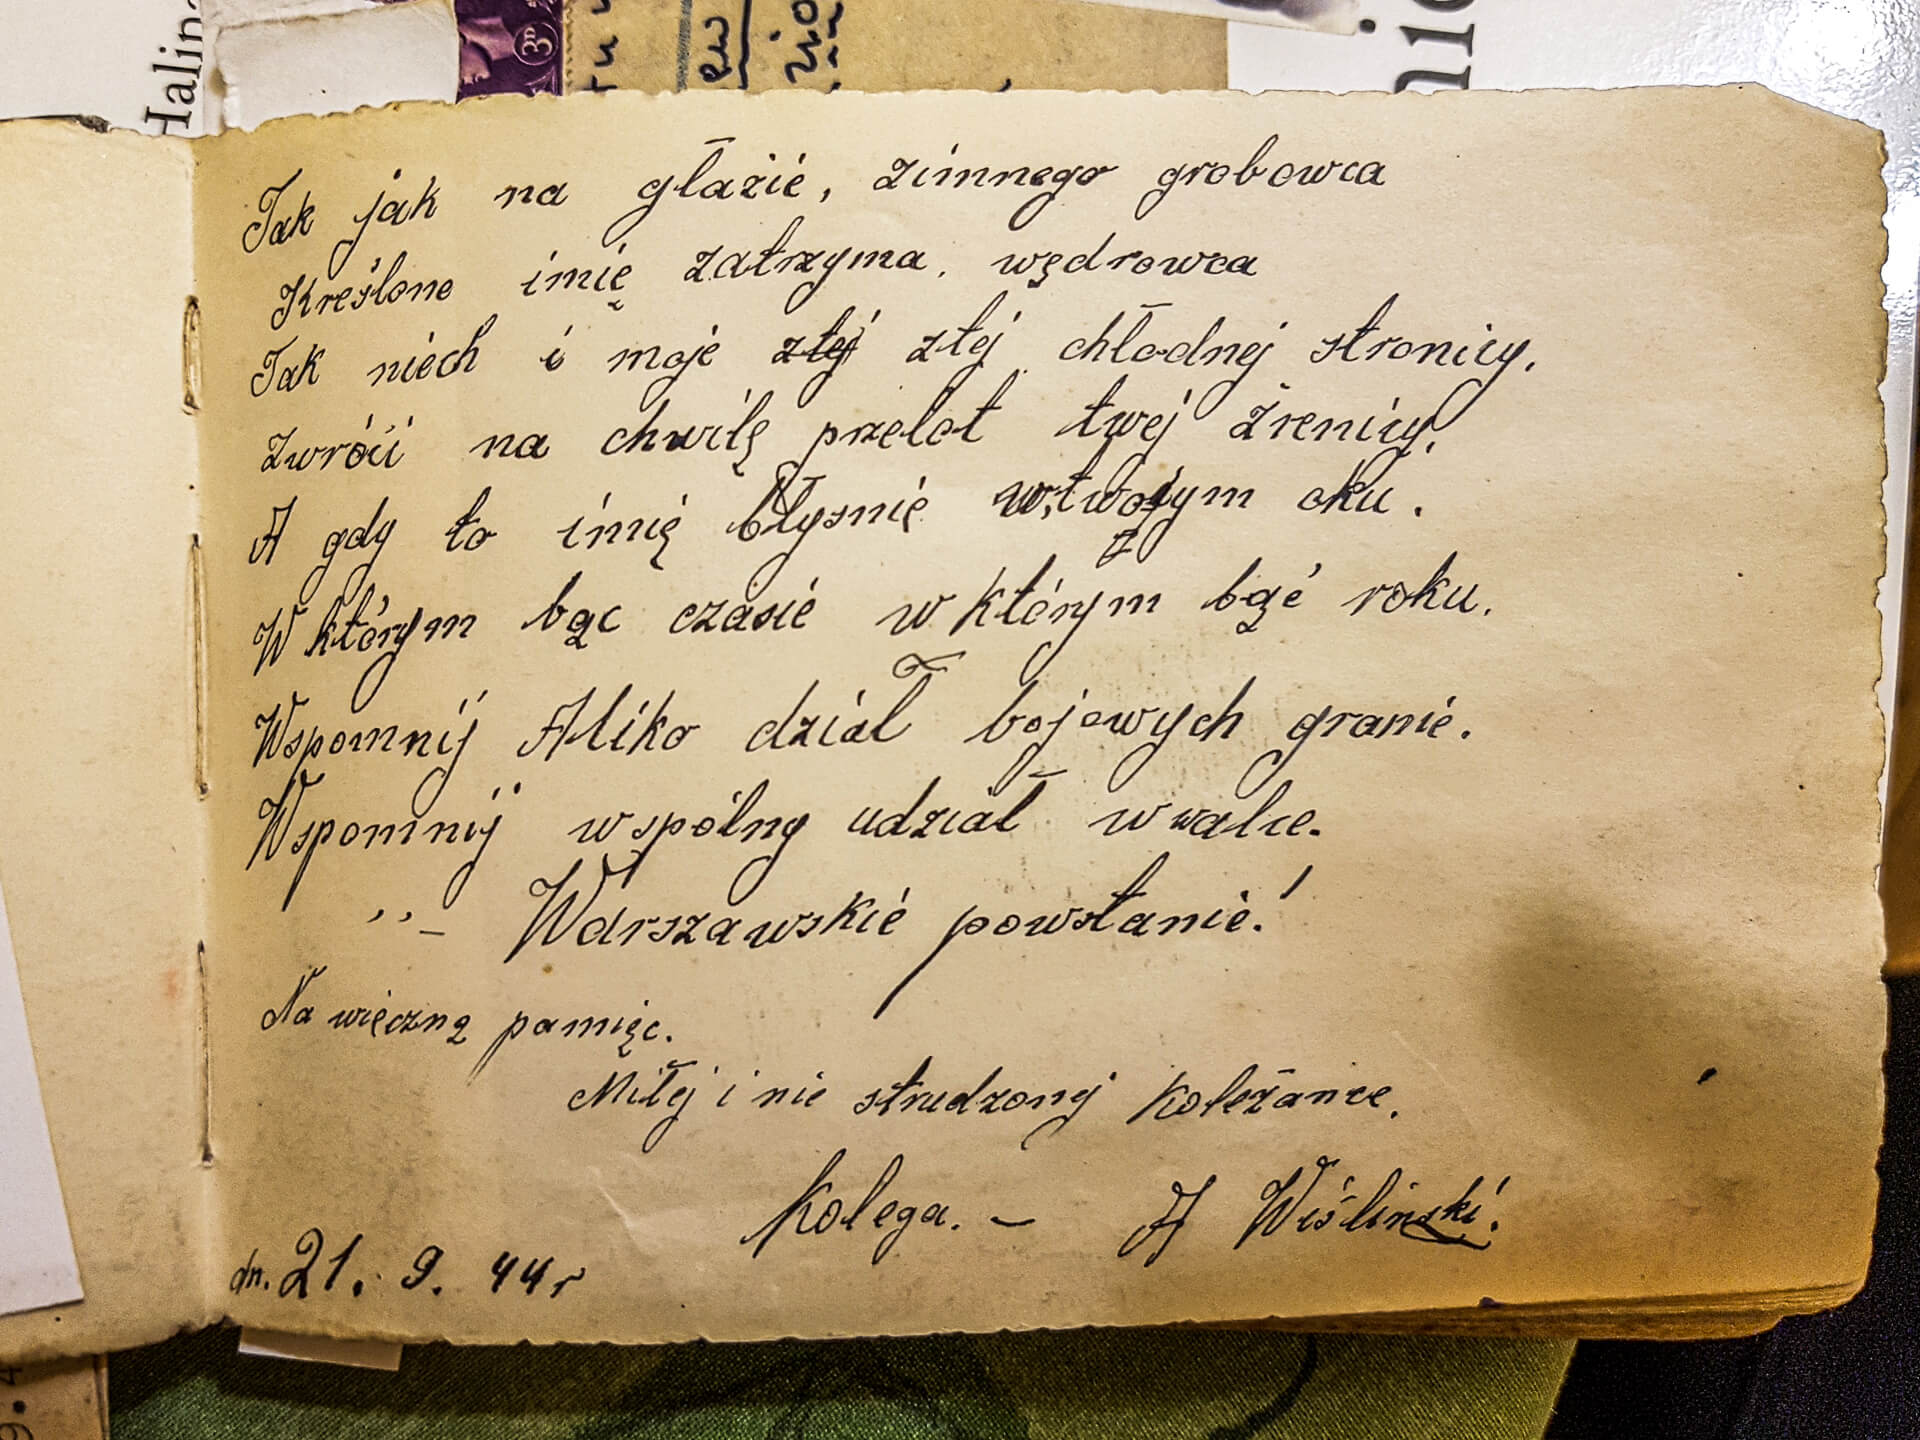 Halin
3D
nic
Tak jak na głazie, zimnego grobowca
Kreślone imię zatrzyma. wędrowca
Tak niech i moje złej złej chłodnej stronicy.
Zwróci na chwilę przelot twej źrenicy.
A gdy to imię błysnię w twojym oku.
W którym bąc czasie w którym bąć roku.
Wspomnij Aliko dział bojowych granie.
Wspomnij wspólny udział w walce.
,, – Warszawskie powstanie!
Na wieczną pamięc.
Miłej i nie strudzonej Koleżance.
Kolega. – H Wiśliński.
dn. 21. 9. 44 r